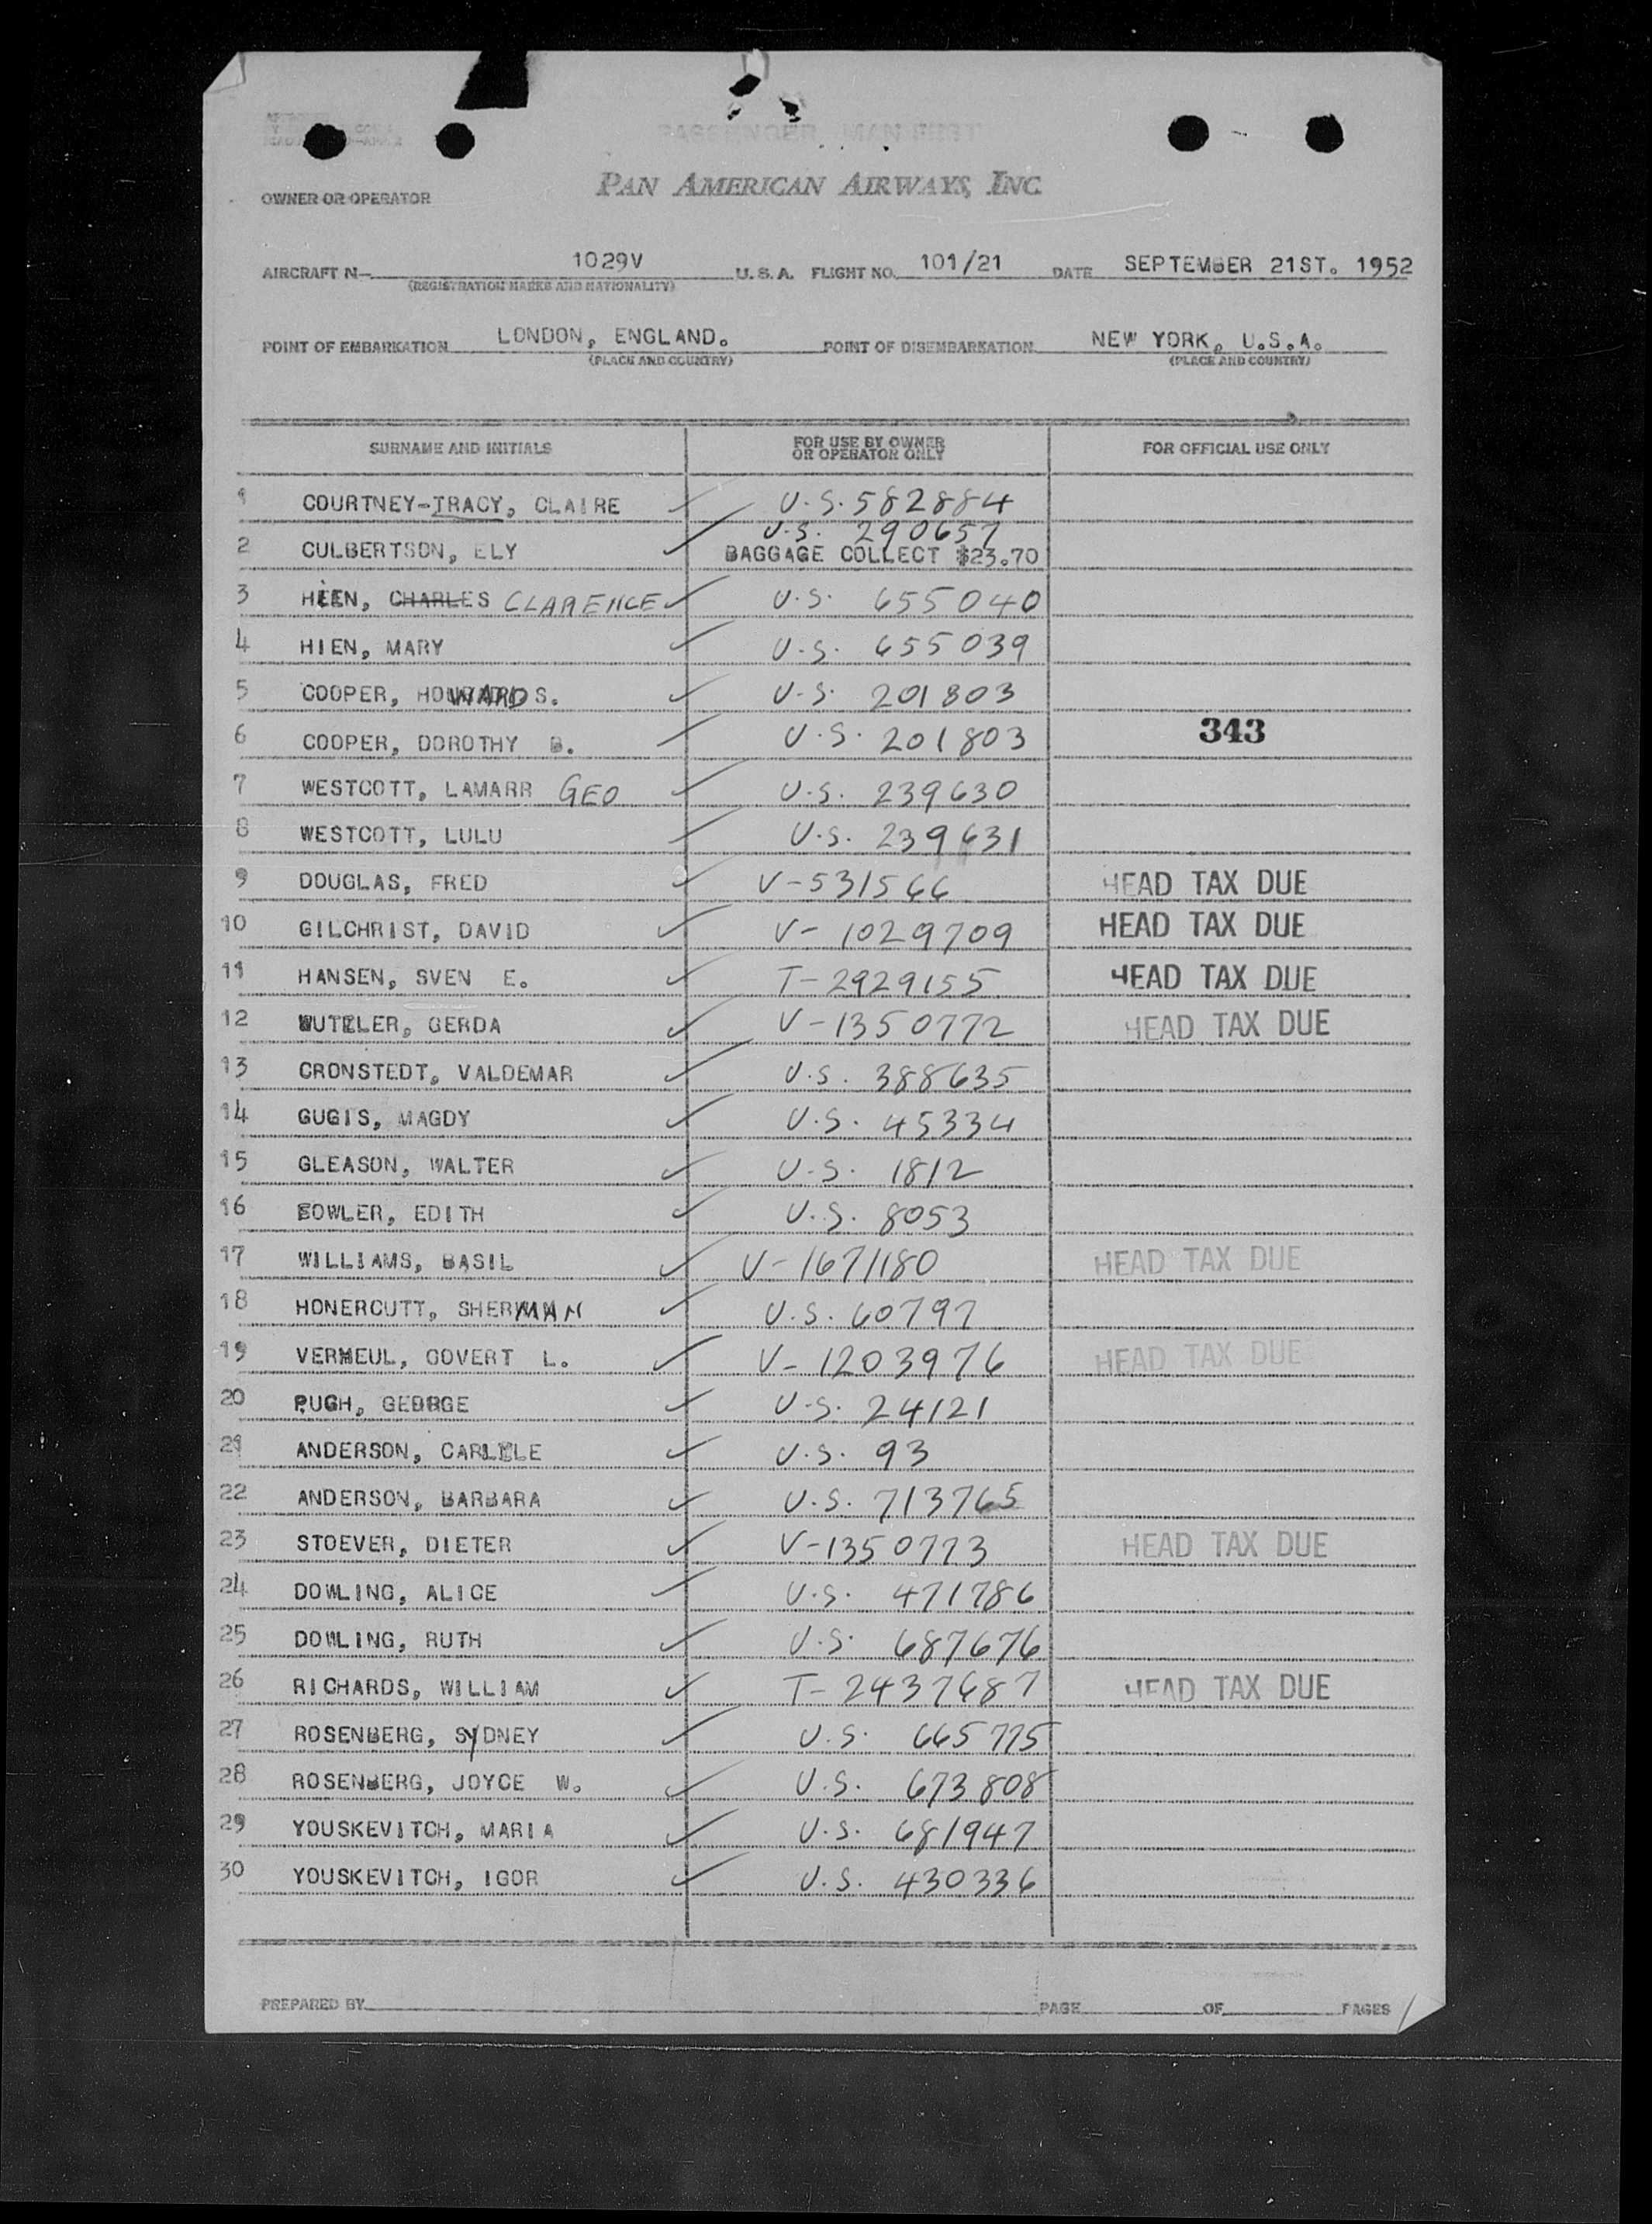 PASSENGER MANIFEST
PAN AMERICAN AIRWAYS, INC
OWNER OR OPERATOR
AIRCRAFT N- 1029V U.S.A. FLIGHT NO. 101/21 DATE SEPTEMBER 21ST. 1952
(REGISTRATION MARKS AND NATIONALITY)
POINT OF EMBARKATION LONDON, ENGLAND. POINT OF DISEMBARKATION NEW YORK, U.S.A.
(PLACE AND COUNTRY) (PLACE AND COUNTRY)
SURNAME AND INITIALS FOR USE BY OWNER OR OPERATOR ONLY FOR OFFICIAL USE ONLY
1 COURTNEY-TRACY, CLAIRE U.S. 582884
U.S. 290657
2 CULBERTSON, ELY BAGGAGE COLLECT $23.70
3 HIEN, CHARLES CLARENCE U.S. 655040
4 HIEN, MARY U.S. 655039
5 COOPER, HOWARD S. U.S. 201803
6 COOPER, DOROTHY B. U.S. 201803 343
7 WESTCOTT, LAMARR GEO U.S. 239630
8 WESTCOTT, LULU U.S. 239631
9 DOUGLAS, FRED V-531566 HEAD TAX DUE
10 GILCHRIST, DAVID V-1029709 HEAD TAX DUE
11 HANSEN, SVEN E. T-2929155 HEAD TAX DUE
12 GERDA V-1350772 HEAD TAX DUE
13 CRONSTEDT, VALDEMAR U.S. 388635
14 GUGIS, MAGDY U.S. 45334
15 GLEASON, WALTER U.S. 1812
16 EDITH U.S. 8053
17 WILLIAMS, BASIL V-1671180 HEAD TAX DUE
18 HONERCUTT, SHERMAN U.S. 60797
19 VERMEUL, GOVERT L. V-1203976 HEAD TAX DUE
20 PUGH, GEORGE U.S. 24121
21 ANDERSON, CARLYLE U.S. 93
22 ANDERSON, BARBARA U.S. 713765
23 STOEVER, DIETER V-1350773 HEAD TAX DUE
24 DOWLING, ALICE U.S. 471786
25 DOWLING, RUTH U.S. 687676
26 RICHARDS, WILLIAM T-2437687 HEAD TAX DUE
27 ROSENBERG, SYDNEY U.S. 665775
28 ROSENBERG, JOYCE W. U.S. 673808
29 YOUSKEVITCH, MARIA U.S. 681947
30 YOUSKEVITCH, IGOR U.S. 430336
PREPARED BY PAGE OF PAGES